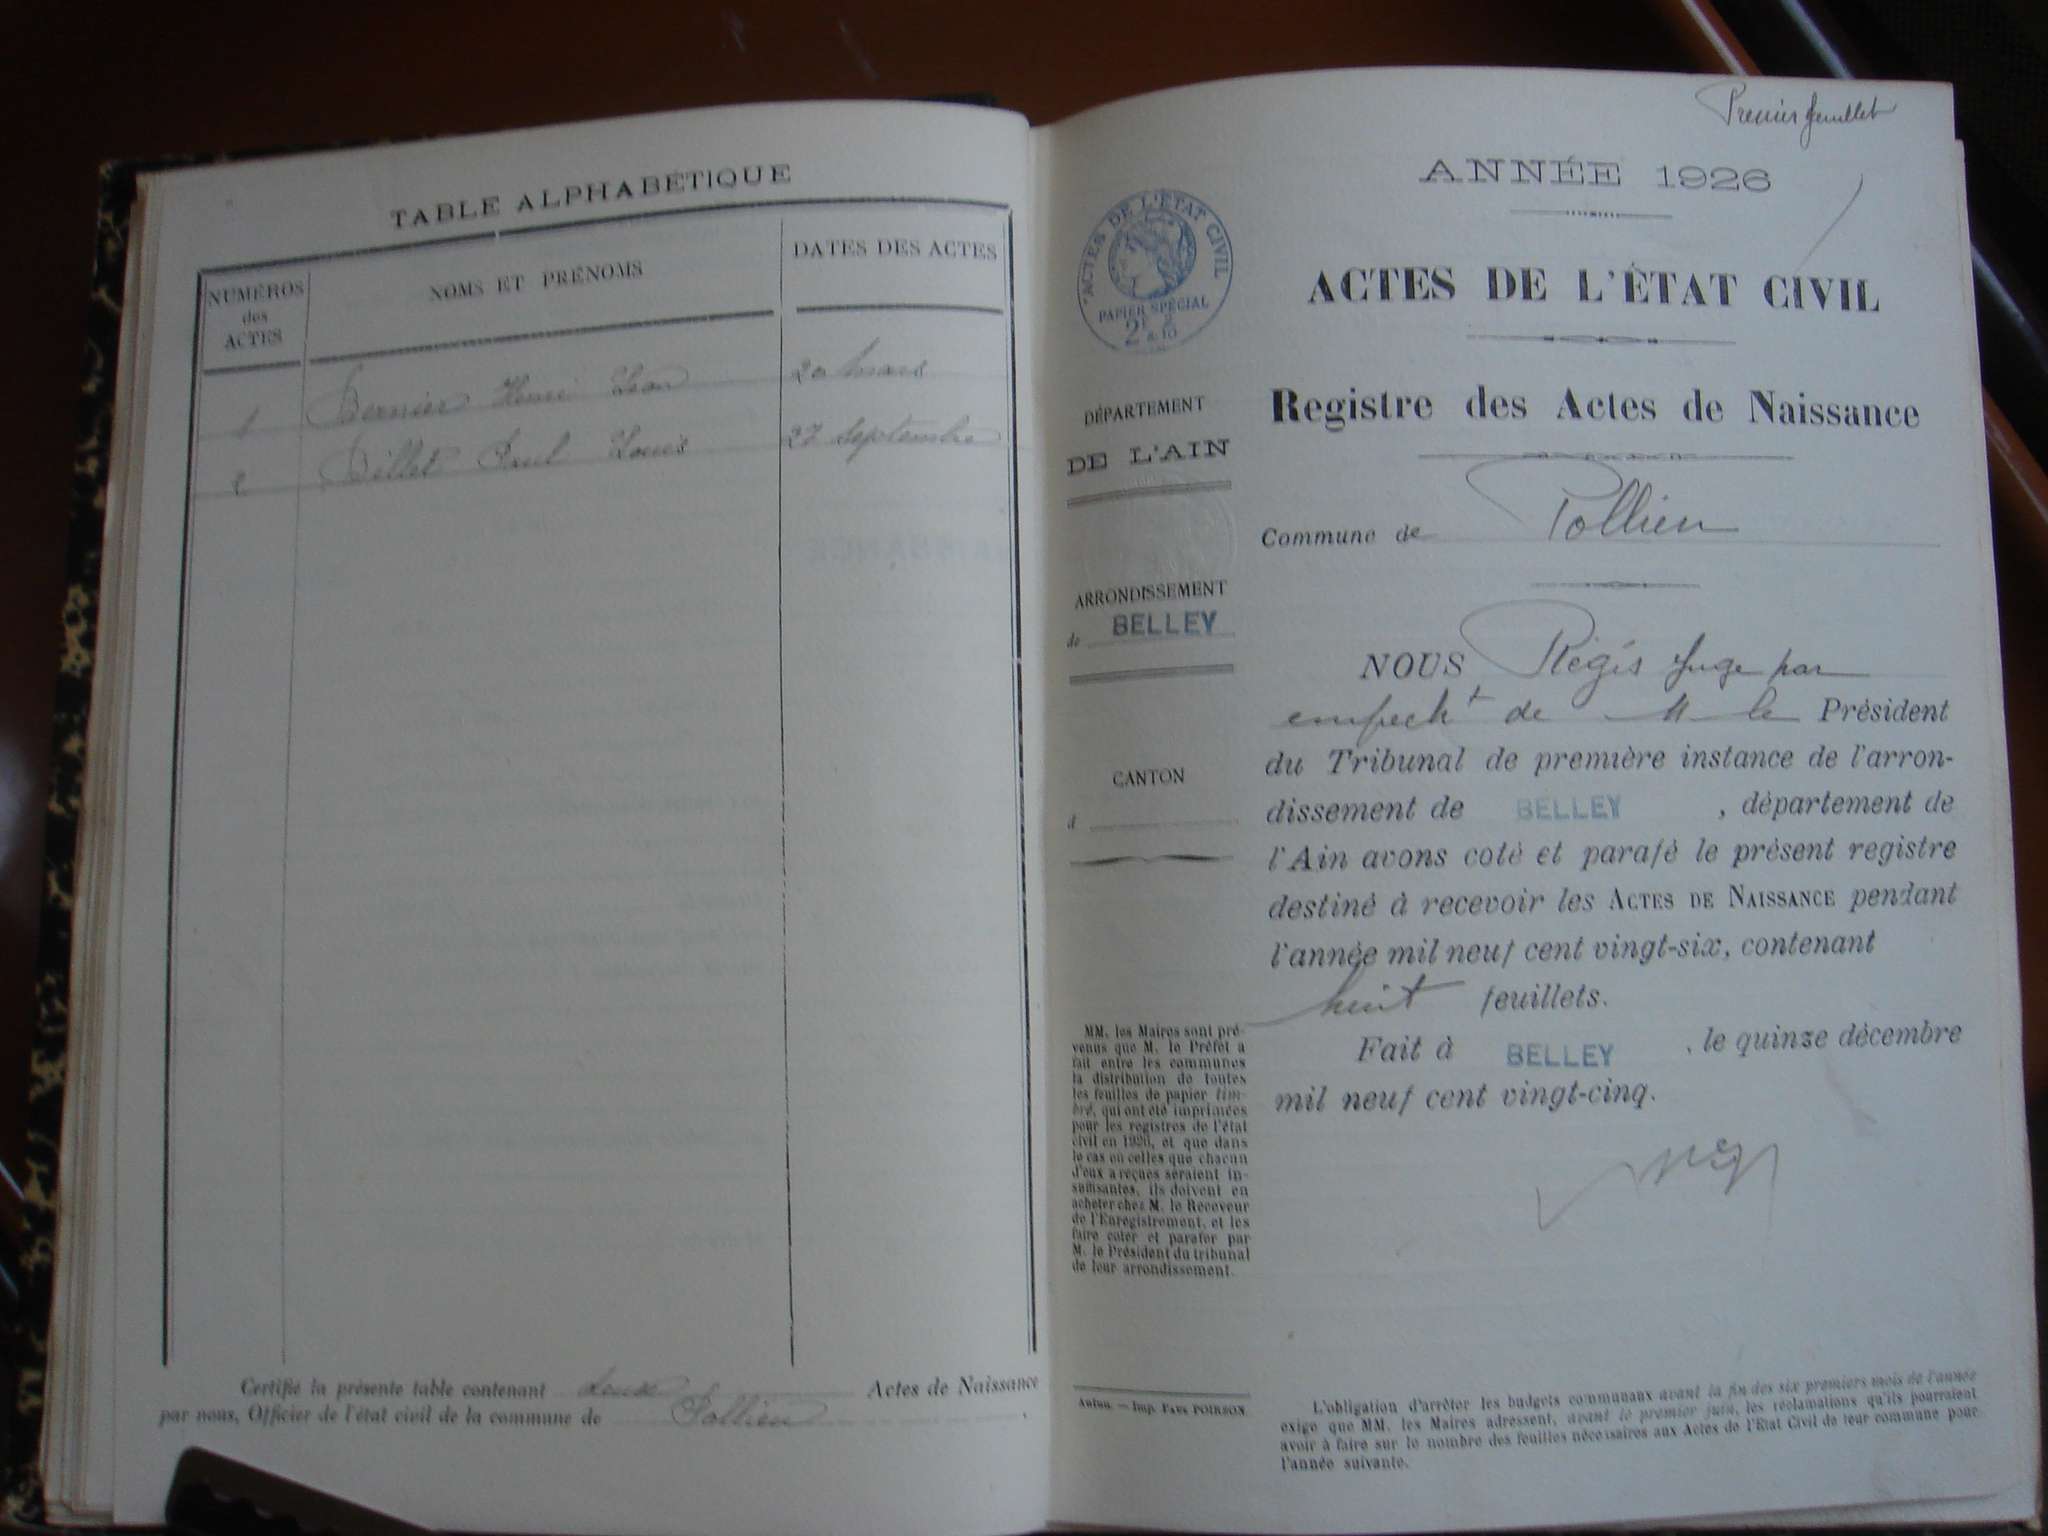 TABLE ALPHABÉTIQUE
NUMÉROS
des
ACTES
NOMS ET PRÉNOMS
DATES DES ACTES
1 Bernier Henri Léon 20 mars
2 Billet Paul Louis 27 septembre
Certifié la présente table contenant deux Actes de Naissance
par nous, Officier de l'état civil de la commune de Pollieu
Premier feuillet
ANNÉE 1926
ACTES DE L'ÉTAT CIVIL
PAPIER SPÉCIAL
ACTES DE L'ÉTAT CIVIL
Registre des Actes de Naissance
DÉPARTEMENT
DE L'AIN
Commune de Pollieu
ARRONDISSEMENT
de BELLEY
CANTON
d
NOUS Régis Juge par
empecht de M le Président
du Tribunal de première instance de l'arron-
dissement de BELLEY, département de
l'Ain avons coté et parafé le présent registre
destiné à recevoir les ACTES DE NAISSANCE pendant
l'année mil neuf cent vingt-six, contenant
huit feuillets.
Fait à BELLEY, le quinze décembre
mil neuf cent vingt-cinq.
MM. les Maires sont pré-
venus que M. le Préfet a
fait entre les communes
la distribution de toutes
les feuilles de papier tim-
bré, qui ont été imprimées
pour les registres de l'état
civil en 1926, et que dans
le cas où celles que chacun
d'eux a reçues seraient in-
suffisantes, ils doivent en
acheter chez M. le Receveur
de l'Enregistrement, et les
faire coter et parafer par
M. le Président du tribunal
de leur arrondissement.
Autun. — Imp. PAUL POIRSON
L'obligation d'arrêter les budgets communaux avant la fin des six premiers mois de l'année
exige que MM. les Maires adressent, avant le premier juin, les réclamations qu'ils pourraient
avoir à faire sur le nombre des feuilles nécessaires aux Actes de l'Etat Civil de leur commune pour
l'année suivante.